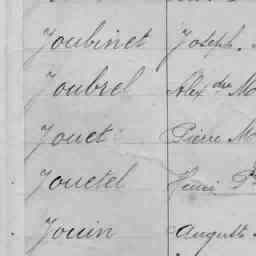 Joubinet Joseph.
Joubrel Alexdre M
Jouet Pierre M
Jouetel Henri P
Jouin Auguste